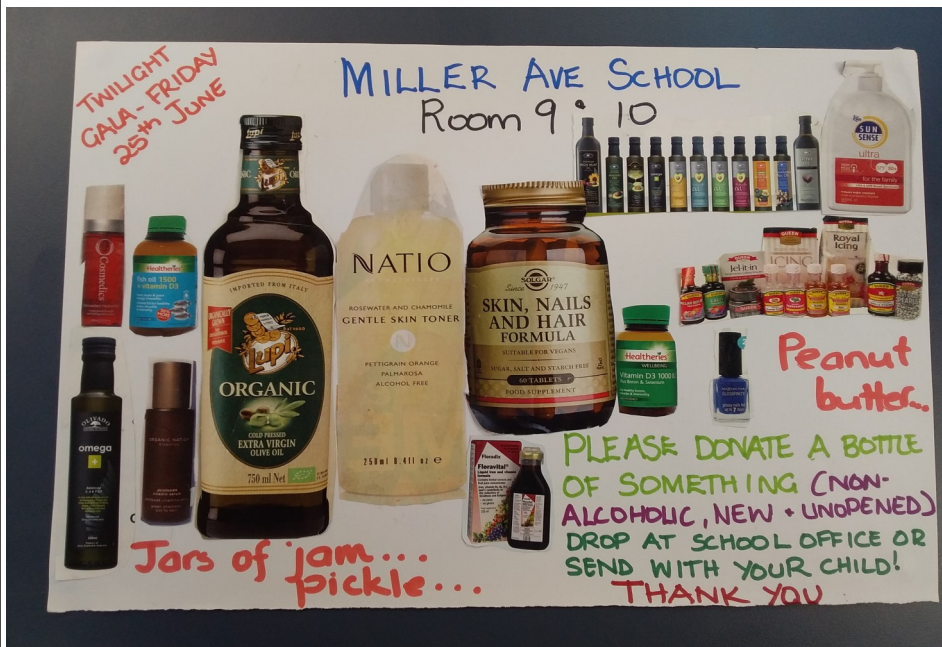 TWILIGHT
GALA - FRIDAY
25th JUNE
MILLER AVE SCHOOL
Room 9 & 10
SUN
SENSE
ultra
for the family
Cosmedics
Healtheries
Fish oil 1500
+ vitamin D3
Lupi
IMPORTED FROM ITALY
Lupi
ORGANIC
COLD PRESSED
EXTRA VIRGIN
OLIVE OIL
750 ml Net
NATIO
ROSEWATER AND CHAMOMILE
GENTLE SKIN TONER
N
PETTIGRAIN ORANGE
PALMAROSA
ALCOHOL FREE
250ml 8.4fl oz e
SOLGAR
Since 1947
SKIN, NAILS
AND HAIR
FORMULA
SUITABLE FOR VEGANS
SUGAR, SALT AND STARCH FREE
60 TABLETS
FOOD SUPPLEMENT
QUEEN
ICING
Royal
Icing
Jel-it-in
Healtheries
WELLBEING
Vitamin D3 1000
OLIVADO
omega
+
Floradix
Floravital
Peanut
butter...
PLEASE DONATE A BOTTLE
OF SOMETHING (NON-
ALCOHOLIC, NEW + UNOPENED)
DROP AT SCHOOL OFFICE OR
SEND WITH YOUR CHILD!
THANK YOU
Jars of jam...
pickle...